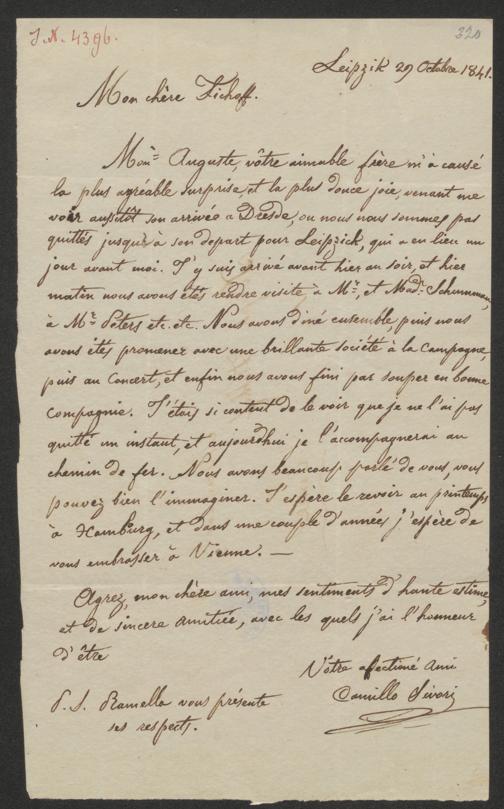 J. N. 4396.
320
Leipzik 29 Octobre 1841.
Mon chère Fichoff.
Mon= Auguste, vôtre aimable frère m'a causé
la plus agréable surprise et la plus douce joie, venant me
voir aussitôt son arrivée a Dresde, ou nous nous sommes pas
quittés jusqu'à son depart pour Leipzick, qui a en lieu un
jour avant moi. J'y suis arrivé avant hier au soir, et hier
matin nous avons étés rendre visite à Mr, et Mad. Schumman,
à Mr Peters etc. etc. Nous avons diné ensemble puis nous
avons étés promener avec une brillante société à la Campagne,
puis au Concert, et enfin nous avons fini par souper en bonne
compagnie. J'étois si content de le voir que je ne l'ai pas
quitté un instant, et aujourdhui je l'accompagnerai au
chemin de fer. Nous avons beaucoup parlé de vous, vous
pouvez bien l'immaginer. J'espère le revoir au printemps
à Hamburg, et dans une couple d'années j'espère de
vous embrasser à Vienne. —
Agrez, mon chère ami, mes sentiments d'haute estime,
et de sincere amitiée, avec les quels j'ai l'honneur
d'être
Votre afectioné Ami
Camillo Sivori
P. S. Ramella vous présente
ses respects.